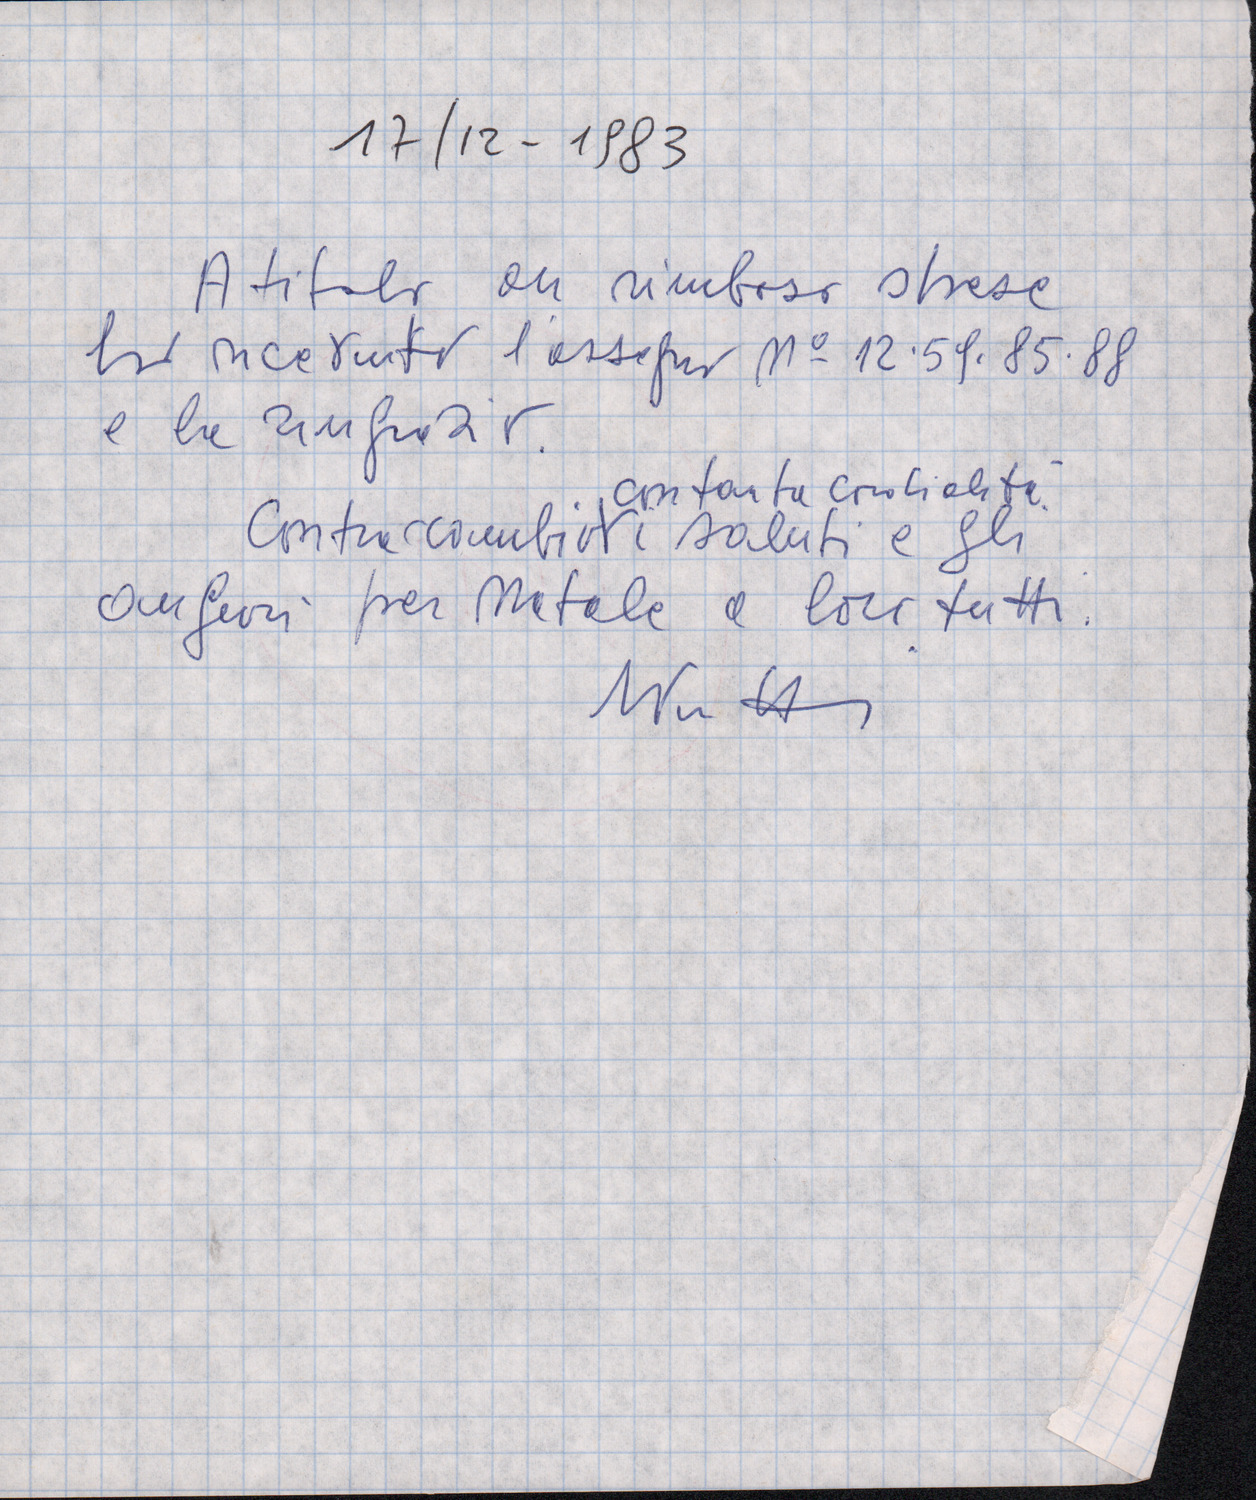 17/12 - 1983
A titolo di rimborso spese
ho ricevuto l'assegno Nº 12.59.85.88
e la ringrazio.
con tanta cordialità
Contraccambio i saluti e gli
auguri per Natale a loro tutti.